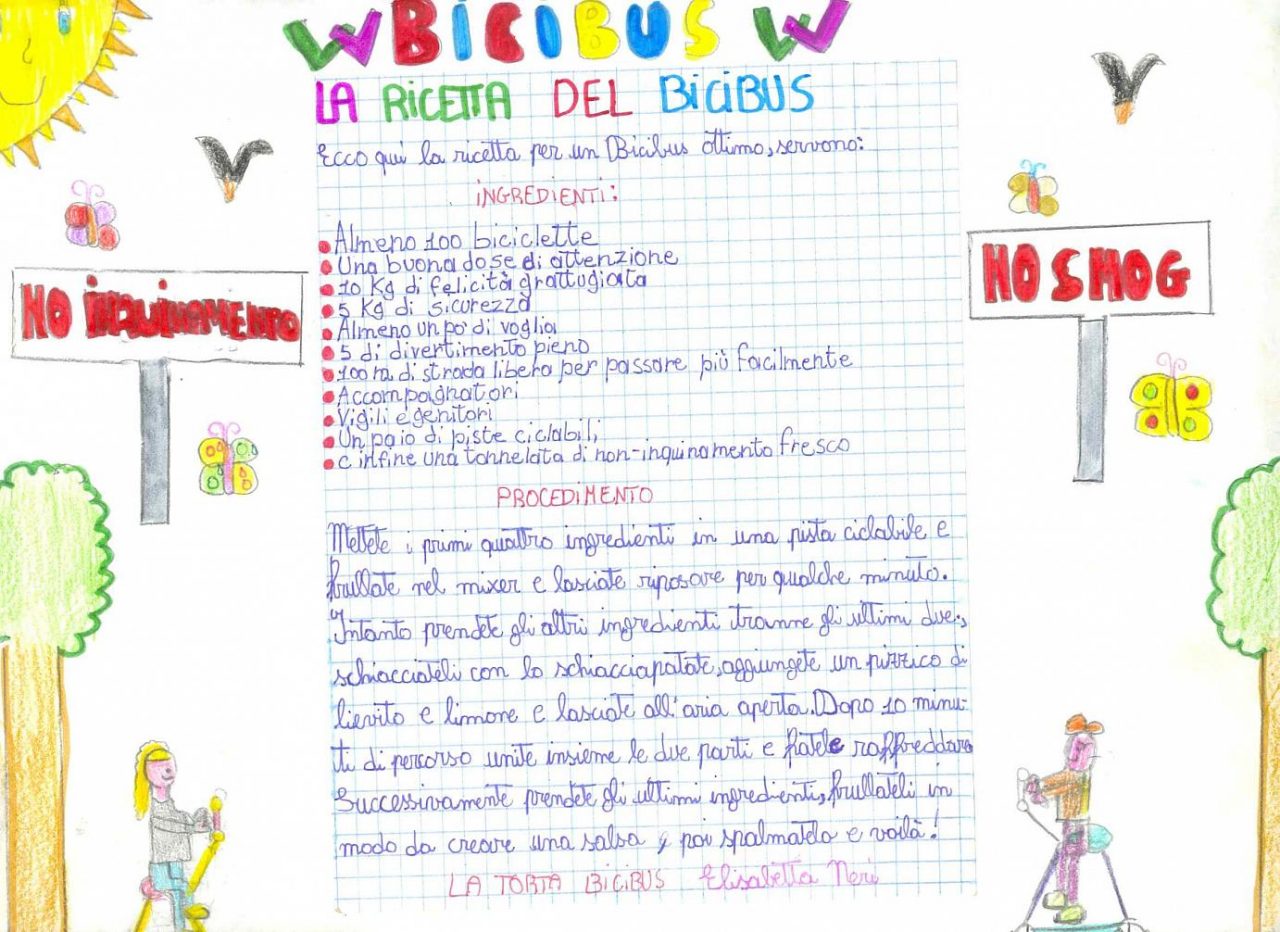 W BICIBUS W
LA RICETTA DEL BICIBUS
Ecco qui la ricetta per un Bicibus ottimo, servono:
INGREDIENTI:
Almeno 100 biciclette
Una buona dose di attenzione
10 Kg di felicità grattugiata
5 Kg di sicurezza
Almeno un po' di voglia
5 di divertimento pieno
100 m di strada libera per passare più facilmente
Accompagnatori
Vigili e genitori
Un paio di piste ciclabili,
e infine una tonnellata di non-inquinamento fresco
PROCEDIMENTO
Mettete i primi quattro ingredienti in una pista ciclabile e
frullate nel mixer e lasciate riposare per qualche minuto.
Intanto prendete gli altri ingredienti tranne gli ultimi due,
schiacciateli con lo schiacciapatate, aggiungete un pizzico di
lievito e limone e lasciate all'aria aperta. Dopo 10 minu-
ti di percorso unite insieme le due parti e fatele raffreddare
Successivamente prendete gli ultimi ingredienti, frullateli in
modo da creare una salsa e poi spalmatela e voilà!
LA TORTA BICIBUS Elisabetta Neri
NO INQUINAMENTO
NO SMOG